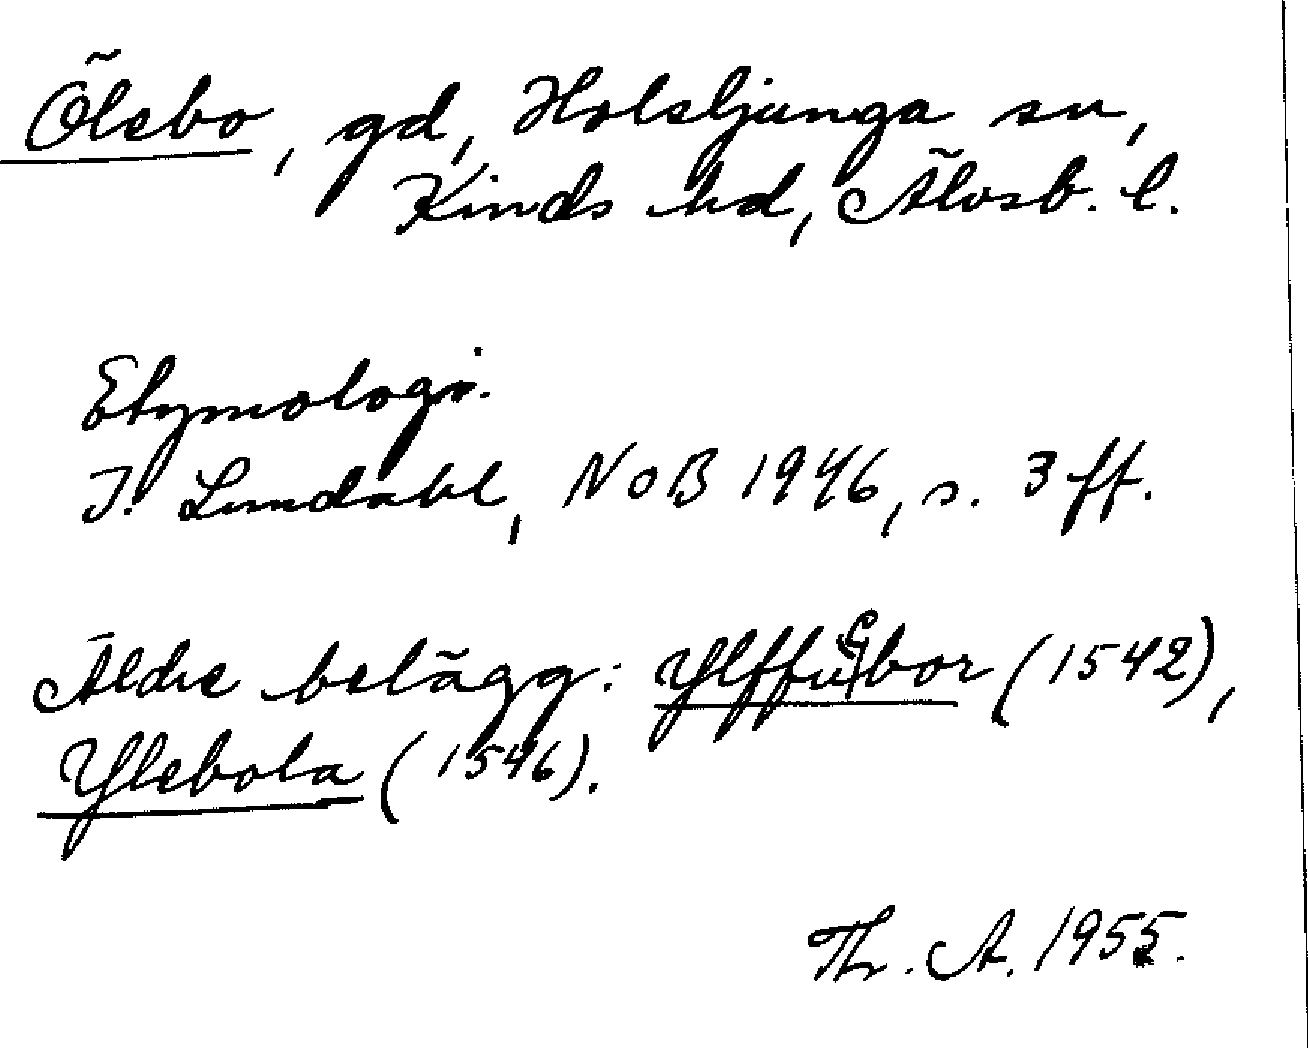 Ölsbo, gd, Holsljunga sn,
Kinds hd, Älvsb. l.
Etymologi.
I. Lundahl, NoB 1946, s. 3 ff.
Äldre belägg: Ylffuesbor (1542),
Ylsbola (1546).
Th. A. 1955.